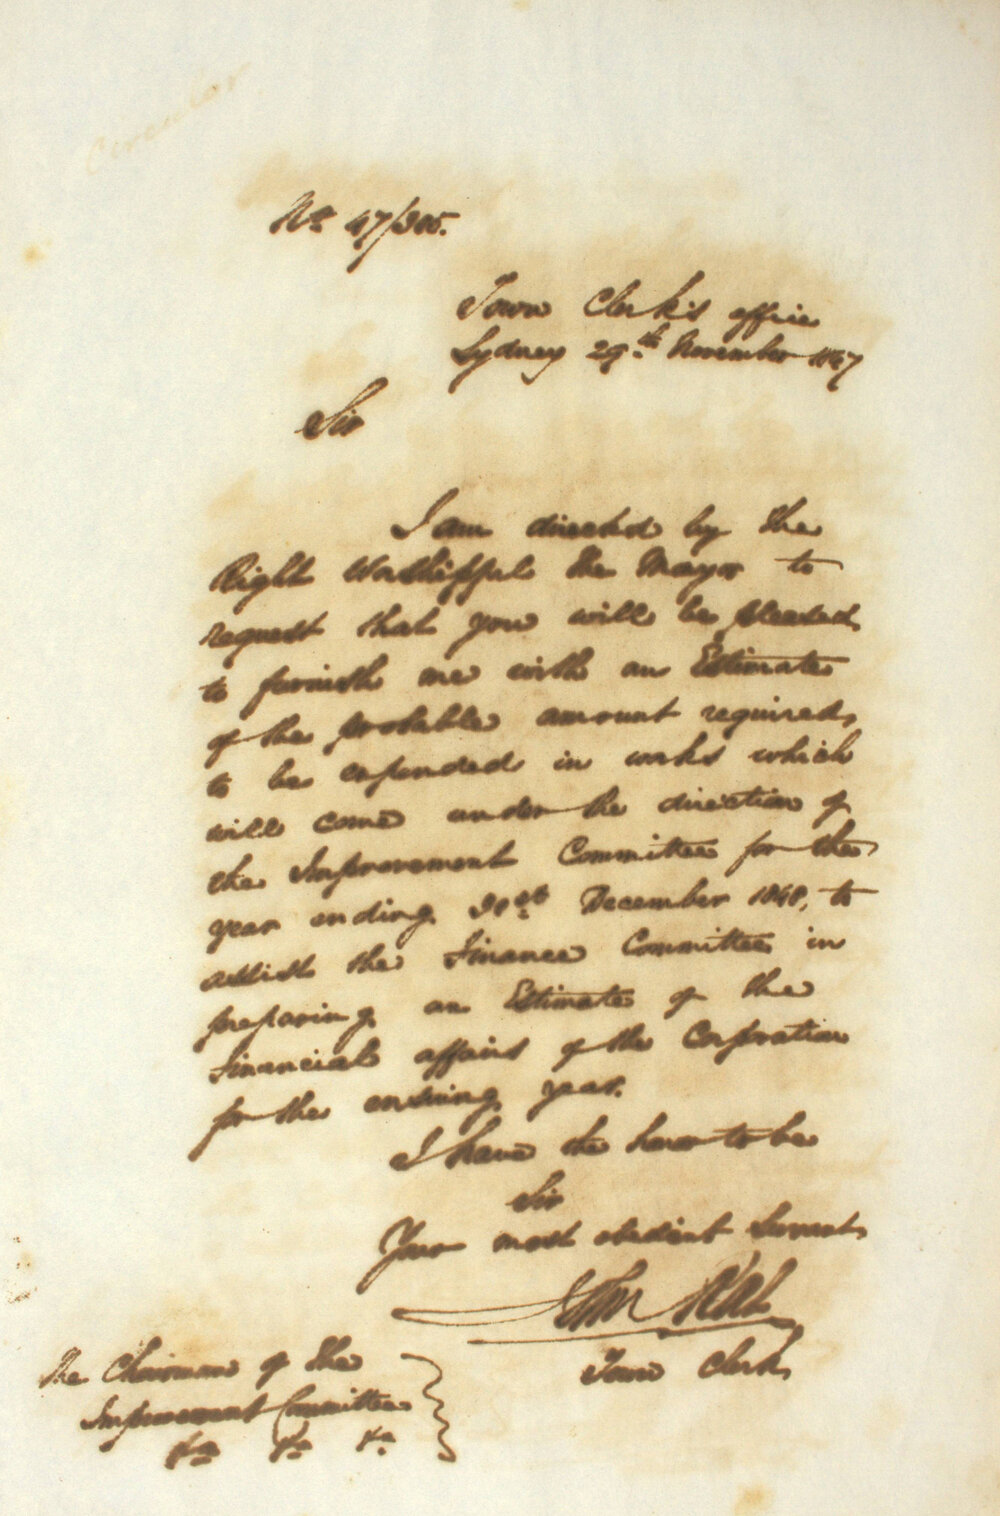 Circular
No. 47/305.
Town Clerk's office
Sydney 29th November 1847
Sir
I am directed by the
Right Worshipful the Mayor to
request that you will be pleased
to furnish me with an Estimate
of the probable amount required
to be expended in works which
will come under the direction of
the Improvement Committee for the
year ending 31st December 1848, to
assist the Finance Committee in
preparing an Estimate of the
Financial affairs of the Corporation
for the ensuing year.
I have the honor to be
Sir
Your most obedient Servant
Town Clerk
The Chairman of the
Improvement Committee
&c &c &c